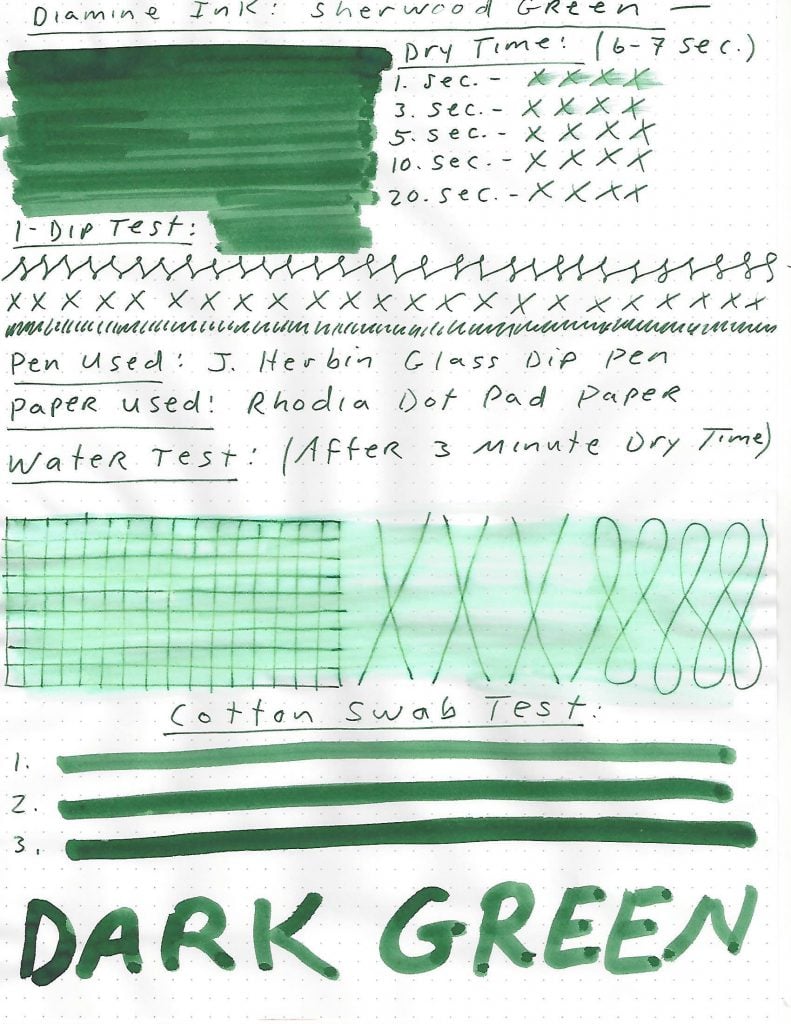 Diamine Ink: Sherwood Green —
Dry Time: (6-7 sec.)
1. sec. - x x x x
3. sec. - x x x x
5. sec. - x x x x
10. sec. - x x x x
20. sec. - x x x x
1-Dip Test:
x x x x x x x x x x x x x x x x x x x x x x x
Pen Used: J. Herbin Glass Dip Pen
Paper used: Rhodia Dot Pad Paper
Water Test: (After 3 minute Dry Time)
Cotton Swab Test:
1.
2.
3.
DARK GREEN